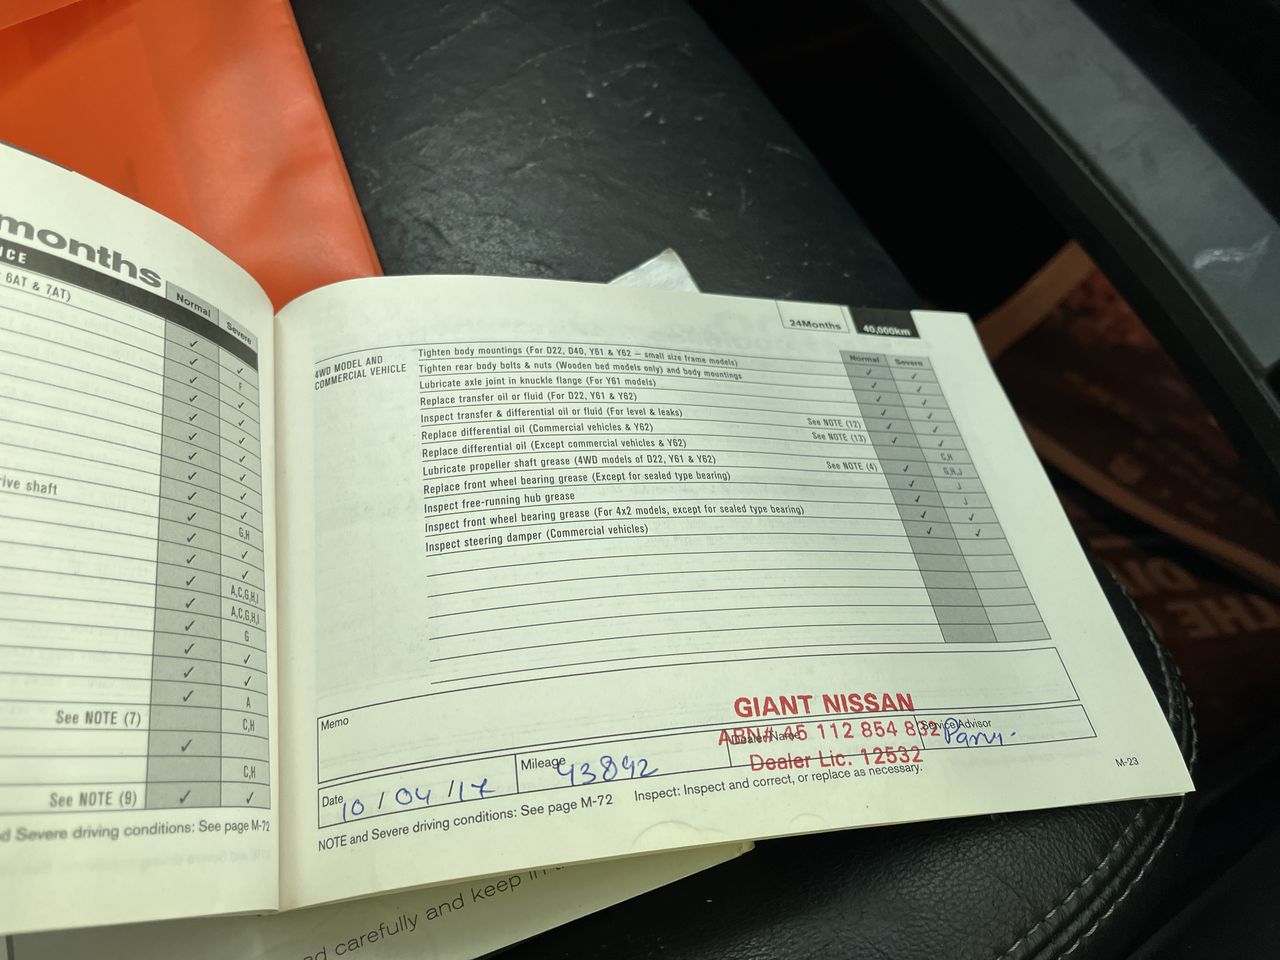 months
ICE
6AT & 7AT)
Normal
Severe
F
rive shaft
G,H
A,C,G,H,I
A,C,G,H,I
G
A
See NOTE (7)
C,H
C,H
See NOTE (9)
d Severe driving conditions: See page M-72
24Months
40,000km
Normal
Severe
4WD MODEL AND
COMMERCIAL VEHICLE
Tighten body mountings (For D22, D40, Y61 & Y62 – small size frame models)
Tighten rear body bolts & nuts (Wooden bed models only) and body mountings
Lubricate axle joint in knuckle flange (For Y61 models)
Replace transfer oil or fluid (For D22, Y61 & Y62)
Inspect transfer & differential oil or fluid (For level & leaks)
Replace differential oil (Commercial vehicles & Y62) See NOTE (12)
Replace differential oil (Except commercial vehicles & Y62) See NOTE (13) C,H
Lubricate propeller shaft grease (4WD models of D22, Y61 & Y62) G,H,J
Replace front wheel bearing grease (Except for sealed type bearing) See NOTE (4) J
Inspect free-running hub grease J
Inspect front wheel bearing grease (For 4x2 models, except for sealed type bearing)
Inspect steering damper (Commercial vehicles)
Memo
GIANT NISSAN
ABN# 45 112 854 832
Dealer Lic. 12532
Date 10/04/17
Mileage 43892
Dealer Name
Service Advisor
NOTE and Severe driving conditions: See page M-72 Inspect: Inspect and correct, or replace as necessary.
M-23
d carefully and keep in
THE